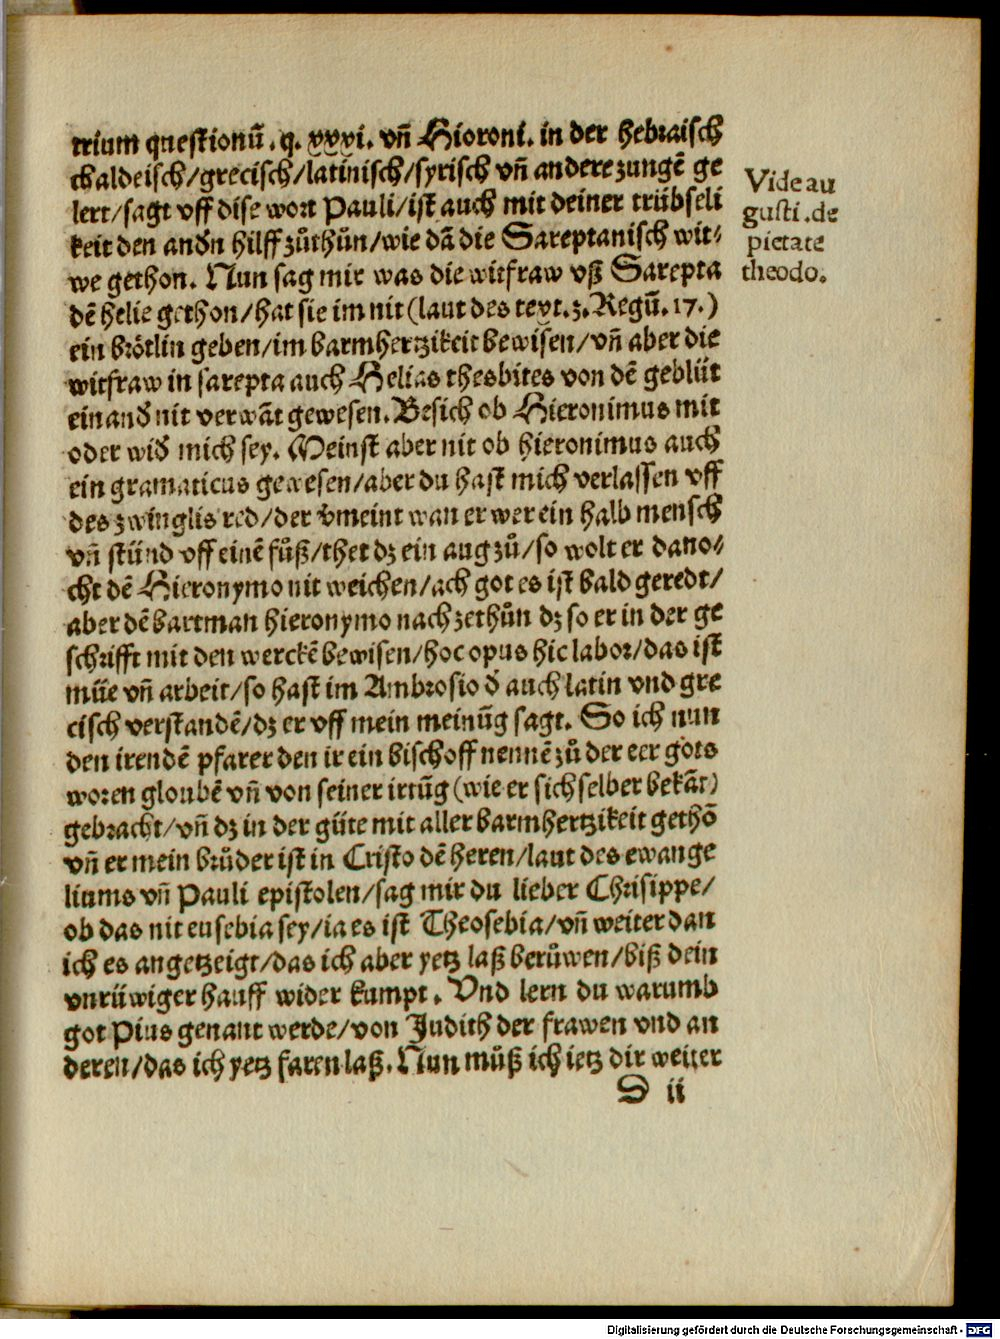 trium questionū. q. xxxi. vñ Hioroni. in der hebraisch
chaldeisch/grecisch/latinisch/syrisch vñ andere zungē ge
lert/sagt vff dise wort Pauli/ist auch mit deiner trübseli
keit den andn hilff zůthůn/wie dā die Sareptanisch wit⸗
we gethon. Nun sag mir was die witfraw vß Sarepta
dē helie gethon/hat sie im nit (laut des text. 3. Regū. 17.)
ein brötlin geben/im barmhertzikeit bewisen/vñ aber die
witfraw in sarepta auch Helias thesbites von dē geblüt
einand nit verwāt gewesen. Besich ob Hieronimus mit
oder wid mich sey. Meinst aber nit ob hieronimus auch
ein gramaticus gewesen/aber du hast mich verlassen vff
des zwinglis red/der vmeint wan er wer ein halb mensch
vñ stünd vff einē fůß/thet dz ein aug zů/so wolt er dano⸗
cht dē Hieronymo nit weichen/ach got es ist bald geredt/
aber dē bartman hieronymo nach zethůn dz so er in der ge
schrifft mit den werckē bewisen/hoc opus hic labor/das ist
müe vñ arbeit/so hast im Ambrosio d auch latin vnd gre
cisch verstandē/dz er vff mein meinūg sagt. So ich nun
den irendē pfarer den ir ein bischoff nennē zů der eer gots
woren gloubē vñ von seiner irrūg (wie er sich selber bekāt)
gebracht/vñ dz in der güte mit aller barmhertzikeit gethō
vñ er mein brůder ist in Cristo dē heren/laut des ewange
liums vñ Pauli epistolen/sag mir du lieber Chrisippe/
ob das nit eusebia sey/ia es ist Theosebia/vñ weiter dan
ich es angetzeigt/das ich aber yetz laß berůwen/biß dein
vnrüwiger hauff wider kumpt. Vnd lern du warumb
got Pius genant werde/von Judith der frawen vnd an
deren/das ich yetz faren laß. Nun můß ich ietz dir weiter
S ii
Vide au
gusti. de
pietate
theodo.
Digitalisierung gefördert durch die Deutsche Forschungsgemeinschaft - DFG